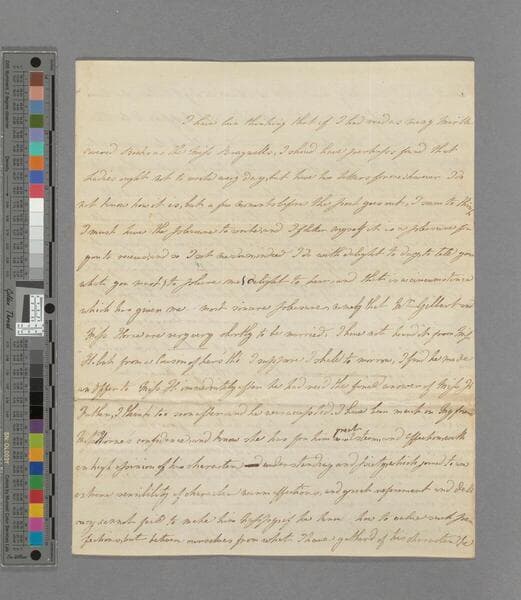 I have been thinking that if I had read as many
Books as the Miss I should have perhaps found that
Ladies ought not to write every day, but have two letters
not know how it is, but a few moments before the post goes out, I seem to
I must have the pleasure to write and I flatter myself it is a pleasure for
you to receive, and so I set me down, and I do with delight to day to tell you
what you must to believe me delight to hear, and that is a circumstance
which has given me most sincere pleasure, namely that Mr. Gilbert and
Miss Horne are very very shortly to be married, I have not heard it from Miss
H. but from a Cousin of hers tho' I suppose I shall to morrow, I find he made
an offer to Miss H. immediately after he had recd the final answer of Miss
I think too soon after and he was accepted. I have been much in
Miss Horne's confidence and know she has for him great esteem and affection with
an high opinion of his character and understanding and piety which joind to an
extreme sensibility of character warm affections, and great refinement and deli
cacy cannot fail to make him happy if he knew how to value such per
fections, but between ourselves from what I have gatherd of his character he